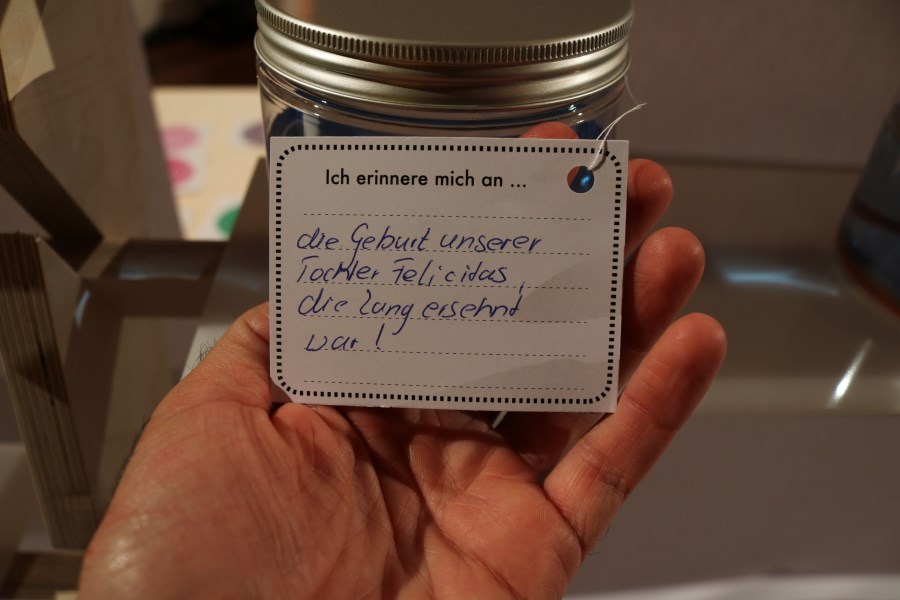 Ich erinnere mich an ...
die Geburt unserer
Tochter Felicitas,
die lang ersehnt
war!